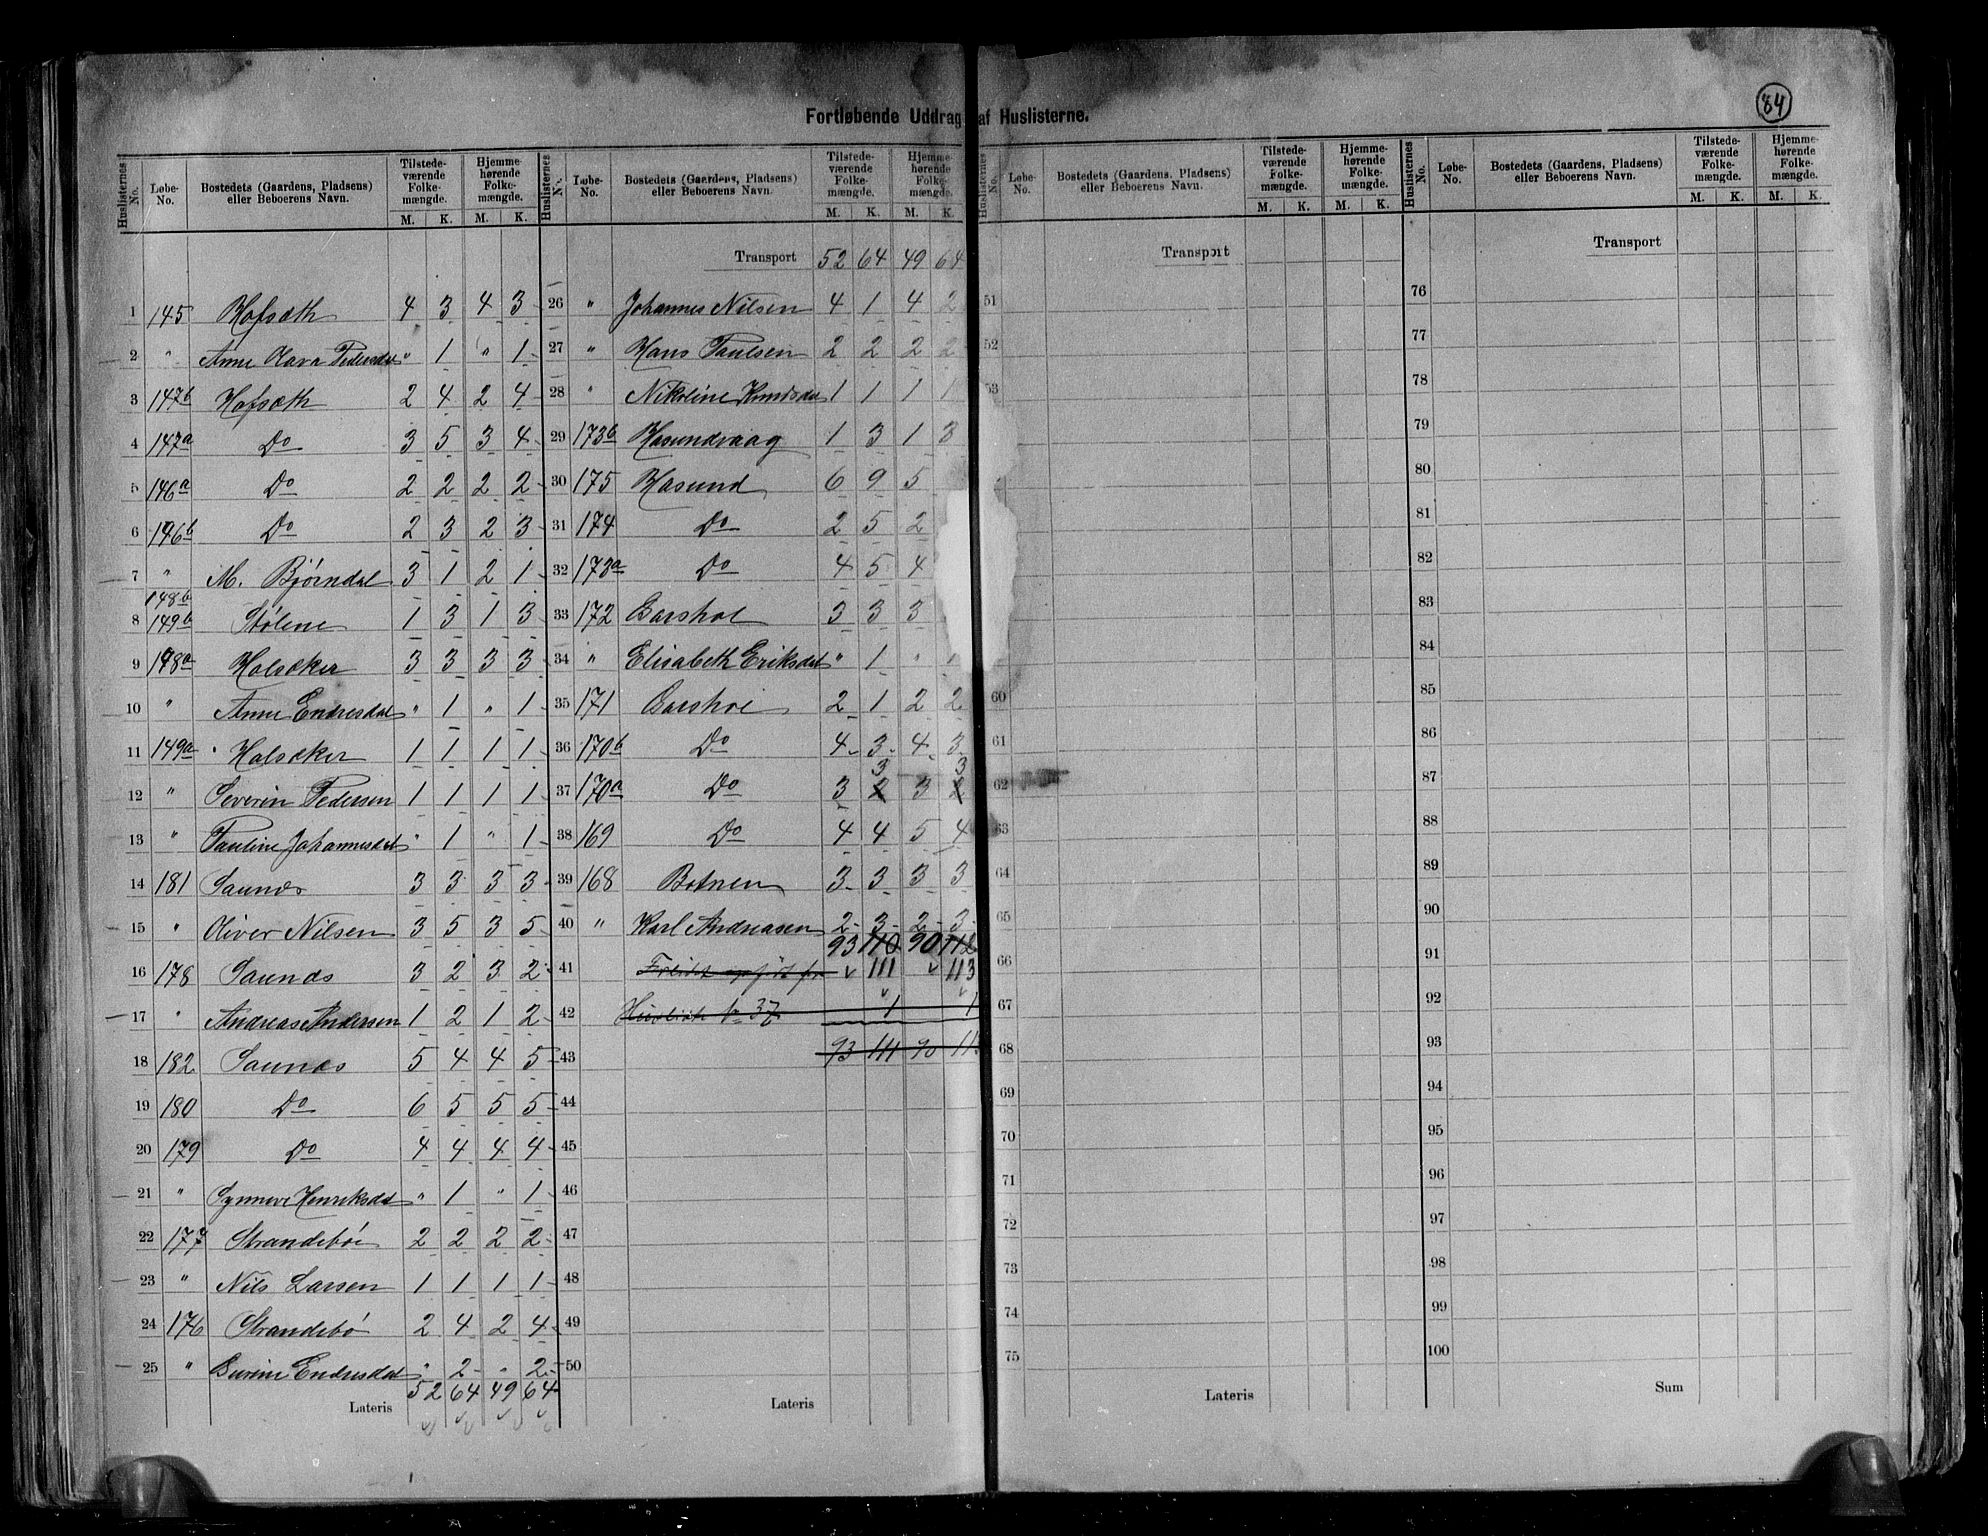 84
Fortløbende Uddrag af Huslisterne.
Huslisternes No. Løbe-No. Bostedets (Gaardens, Pladsens) eller Beboerens Navn. Tilstedeværende Folkemængde. M. K. Hjemmehørende Folkemængde. M. K.
1 145 Hofsæth 4 3 4 3
2 " Anne Olava Pedersdat " 1 " 1
3 147b Hofsæth 2 4 2 4
4 147a Do 3 5 3 4
5 146a Do 2 2 2 2
6 146b Do 2 3 2 3
7 " M. Bjørndal 3 1 2 1
148b
8 149b Stølene 1 3 1 3
9 148a Holsæker 3 3 3 3
10 " Anne Endresdat " 1 " 1
11 149a Holsæker 1 1 1 1
12 " Severin Pedersen 1 1 1 1
13 " Pauline Johannesdat " 1 " 1
14 181 Saunæs 3 3 3 3
15 " Oliver Nilsen 3 5 3 5
16 178 Saunæs 3 2 3 2
17 " Andreas Andersen 1 2 1 2
18 182 Saunæs 5 4 4 5
19 180 Do 6 5 5 5
20 179 Do 4 4 4 4
21 " Synneve Henriksdat " 1 " 1
22 177 Strandebøe 2 2 2 2
23 " Nils Larsen 1 1 1 1
24 176 Strandebø 2 4 2 4
25 " Endresdat " 2 " 2
Lateris 52 64 49 64
Huslisternes No. Løbe-No. Bostedets (Gaardens, Pladsens) eller Beboerens Navn. Tilstedeværende Folkemængde. M. K. Hjemmehørende Folkemængde. M. K.
Transport 52 64 49 64
26 " Johannes Nilsen 4 1 4 2
27 " Hans Paulsen 2 2 2 2
28 " Nikoline Knudsdat 1 1 1 1
29 173b Hasundvaag 1 3 1 3
30 175 Hasund 6 9 5
31 174 Do 2 5 2
32 173a Do 4 5 4
33 172 Garshol 3 3 3
34 " Elisabeth Eriksdat " 1 "
35 171 Garshol 2 1 2 2
36 170b Do 4 3 4 3
3 3
37 170a Do 3 2 3 2
38 169 Do 4 4 5 4
39 168 Botnen 3 3 3 3
40 " Karl Andreasen 2 3 2 3
93 110 90 112
41 111 113
42 Husliste No 37 1 1
43 93 111 90
44
45
46
47
48
49
50
Lateris
Huslisternes No. Løbe-No. Bostedets (Gaardens, Pladsens) eller Beboerens Navn. Tilstedeværende Folkemængde. M. K. Hjemmehørende Folkemængde. M. K.
Transport
51
52
53
60
61
62
63
64
65
66
67
68
69
70
71
72
73
74
75
Lateris
Huslisternes No. Løbe-No. Bostedets (Gaardens, Pladsens) eller Beboerens Navn. Tilstedeværende Folkemængde. M. K. Hjemmehørende Folkemængde. M. K.
Transport
76
77
78
79
80
81
82
83
84
85
86
87
88
89
90
91
92
93
94
95
96
97
98
99
100
Sum